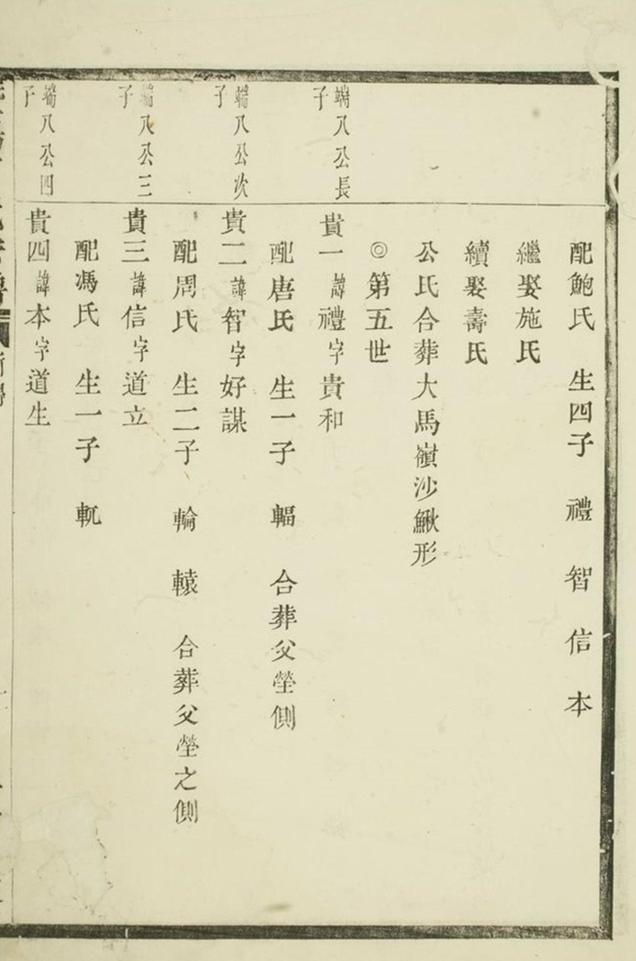 配鮑氏 生四子 禮 智 信 本
繼娶施氏
續娶壽氏
公氏合葬大馬嶺沙鰍形
◎第五世
端八公長子
貴一諱禮字貴和
配唐氏 生一子 輻 合葬父塋側
端八公次子
貴二諱智字好謀
配周氏 生二子 輪 轅 合葬父塋之側
端八公三子
貴三諱信字道立
配馮氏 生一子 軏
端八公四子
貴四諱本字道生